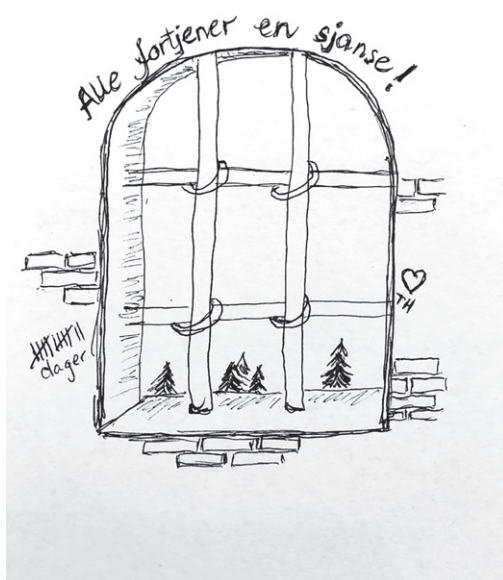 Alle fortjener en sjanse!
TH
dager